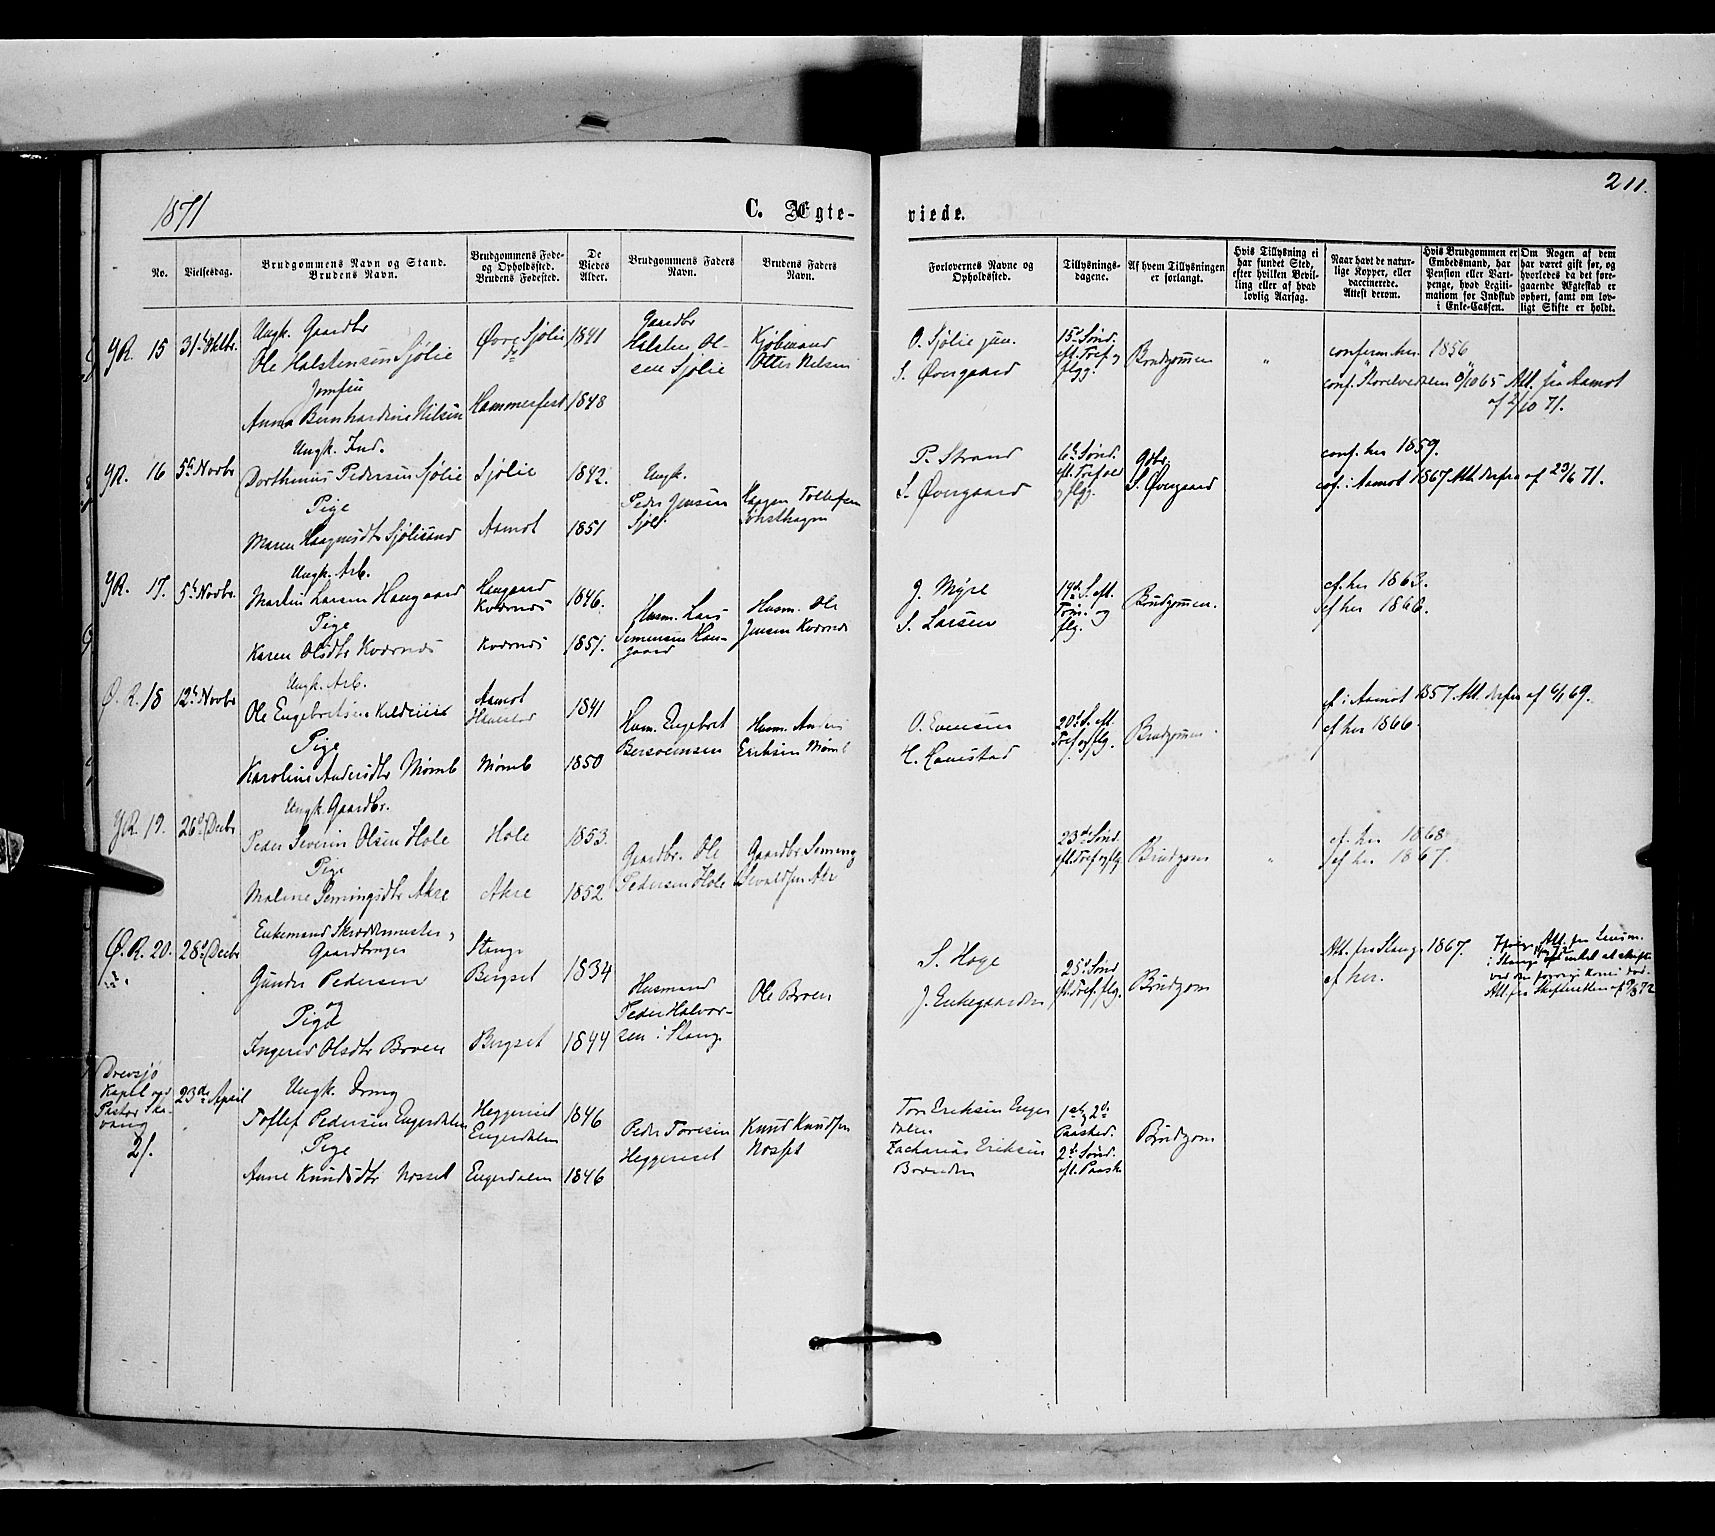 1871
C. Ægte-
viede.
211.
No.
Vielsesdag.
Brudgommens Navn og Stand.
Brudens Navn.
Brudgommens Føde-
og Opholdssted.
Brudens Fødested.
De
Viedes
Alder.
Brudgommens Faders
Navn.
Brudens Faders
Navn.
Forlovernes Navne og
Opholdssted.
Tillysnings-
dagene.
Af hvem Tillysningen
er forlangt.
Hvis Tillysning ei
har fundet Sted,
efter hvilken Bevil-
ling eller af hvad
lovlig Aarsag.
Naar havt de natur-
lige Kopper, eller
vaccinerede.
Attest derom.
Hvis Brudgommen er
Embedsmand, har
Pension eller Vart-
penge, hvad Legiti-
mation for Indskud
i Enke-Cassen.
Om Nogen af dem
har været gift før, og
hvorledes da det fore-
gaaende Ægteskab er
ophørt, samt om lov-
ligt Skifte er holdt.
YR. 15
Ungk. Gaardbr
Ole Halstensen Sjølie
Jomfru
Anna Bernhardine Nilsen
Øvre Sjølie
do
Hammerfest
1841
1848
Gaardbr
Halsten Ol-
sen Sjølie
Kjøbmand
Otter Nilsen
O. Sjølie jun.
S. Øvergaard
15de Sønd.
eft. Tref. og
flgg.
Brudgommen
"
conferm. her 1856
conf. Storelvedalen 8/10 65 Att. fra Aamot
af 2/10 71.
YR. 16
5te Novbr
Ungk. Ind.
Dorthinus Pedersen Sjølie
Pige
Maren Haagensdtr Sjølisand
Sjølie
Aamot
1842.
1851
Ungk.
Peder Jensen
Sjøli
Haagen Tollefsen
P. Strand
S. Øvergaard
6te Sønd.
og flgg.
Gdbr.
S. Øvergaard
conf. her 1859.
cof. i Aamot 1867 Att. derfra af 23/6 71.
YR. 17.
5te Novbr.
Ungk. Arb.
Martin Larsen Haugaard
Pige
Karen Olsdtr Kværnes
Haugaard
Kværnes
Kværnes
1846.
1851.
Husm. Lars
Simensen Hau-
gaard
Husm. Ole
Jensen Kværnes
J. Myre
S. Larsen
14de S. eft.
Trin. og
flg.
Brudgommen.
cf. her 1863.
cf her 1866.
Ø. R. 18
12te Novbr
Ungk. Arb.
Ole Engebretsen
Pige
Karoline Andersdtr Mømb
Aamot
Hanestad
Mømb
1841
1850
Husm. Engebret
Husm. Anders
Eriksen Mømb
O. Evensen
H. Hanestad
20de S. eft.
Tref. og flg.
Brudgommen.
cf i Aamot 1857. Att. derfra af 6/1 69.
cf her 1866.
YR. 19.
26de Decbr
Ungk. Gaardbr.
Peder Severin Olsen Hole
Pige
Maline Semingsdtr Akre
Hole
Akre
1853.
1852
Gaardbr. Ole
Pedersen Hole
Gaardbr Seming
Sivaldsen Akre
23de Sønd.
eft. Tref. og flg
Brudgom
"
cf. her 1868
cf her 1867.
Ø. R. 20.
28de Decbr
Enkemand Skræddermester,
Gaardbruger
Gunder Pedersen
og
Pige
Ingerid Olsdtr Broen
Stange
Bergset
Bergset
1834
1844
Husmand
Peder Halvor-
sen i Stang.
Ole Broen
S. Hoge
J. Enkegaarden
25de Sønd
eft. Tref. flg.
Brudgom
Att. fra Stange 1867.
cf her.
Drevsjø
Kapel ved
Pastor Ska-
vang
21.
23de April
Ungk. Dreng
Tollef Pedersen Engerdalen
Pige
Anne Knudsdtr Nosset
Heggeriset
Engerdalen
Engerdalen
1846
1846
Peder Toresen
Heggeriset
Knud Knudsen
Nosset
Tor Eriksen Enger
dalen
Zacharias Eriksen
Brænden
1ste og 2de
Paasked.
2de Sønd.
eft. Paaske
Brudgom